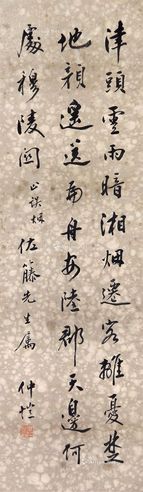 津頭雲雨暗湘煙遷客離憂楚
地顏遙送扁舟安陸郡天邊何
處穆陵關 山誤煙 佐藤先生属 仲愷